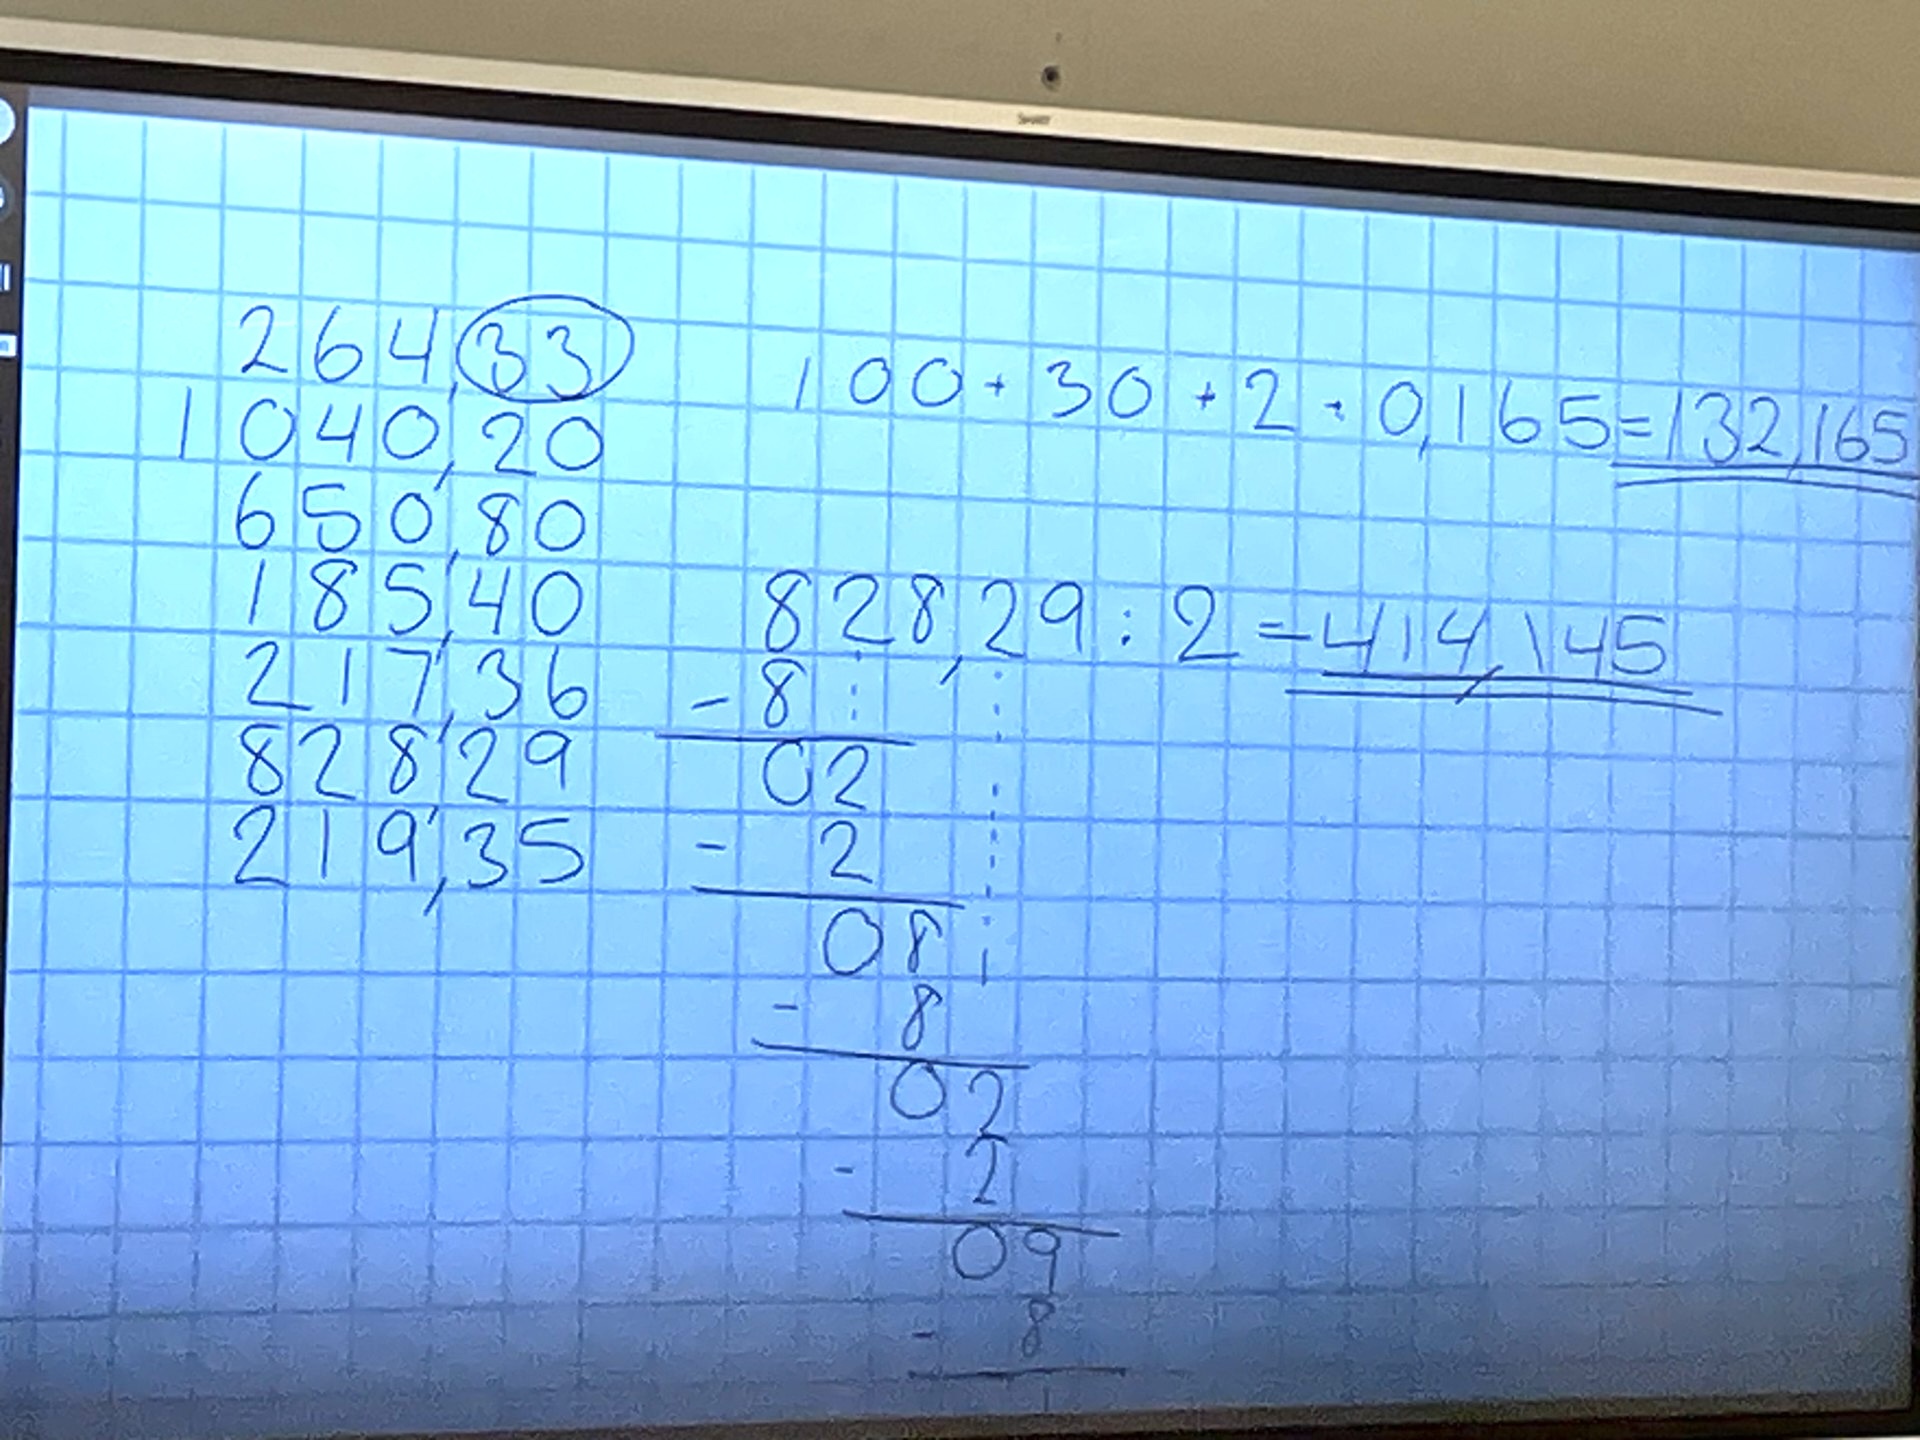 264,33
1040,20
650,80
185,40
217,36
828,29
219,35
100 + 30 + 2 + 0,165 = 132,165
828,29 : 2 = 414,145
- 8
02
- 2
08
- 8
02
- 2
09
- 8
1